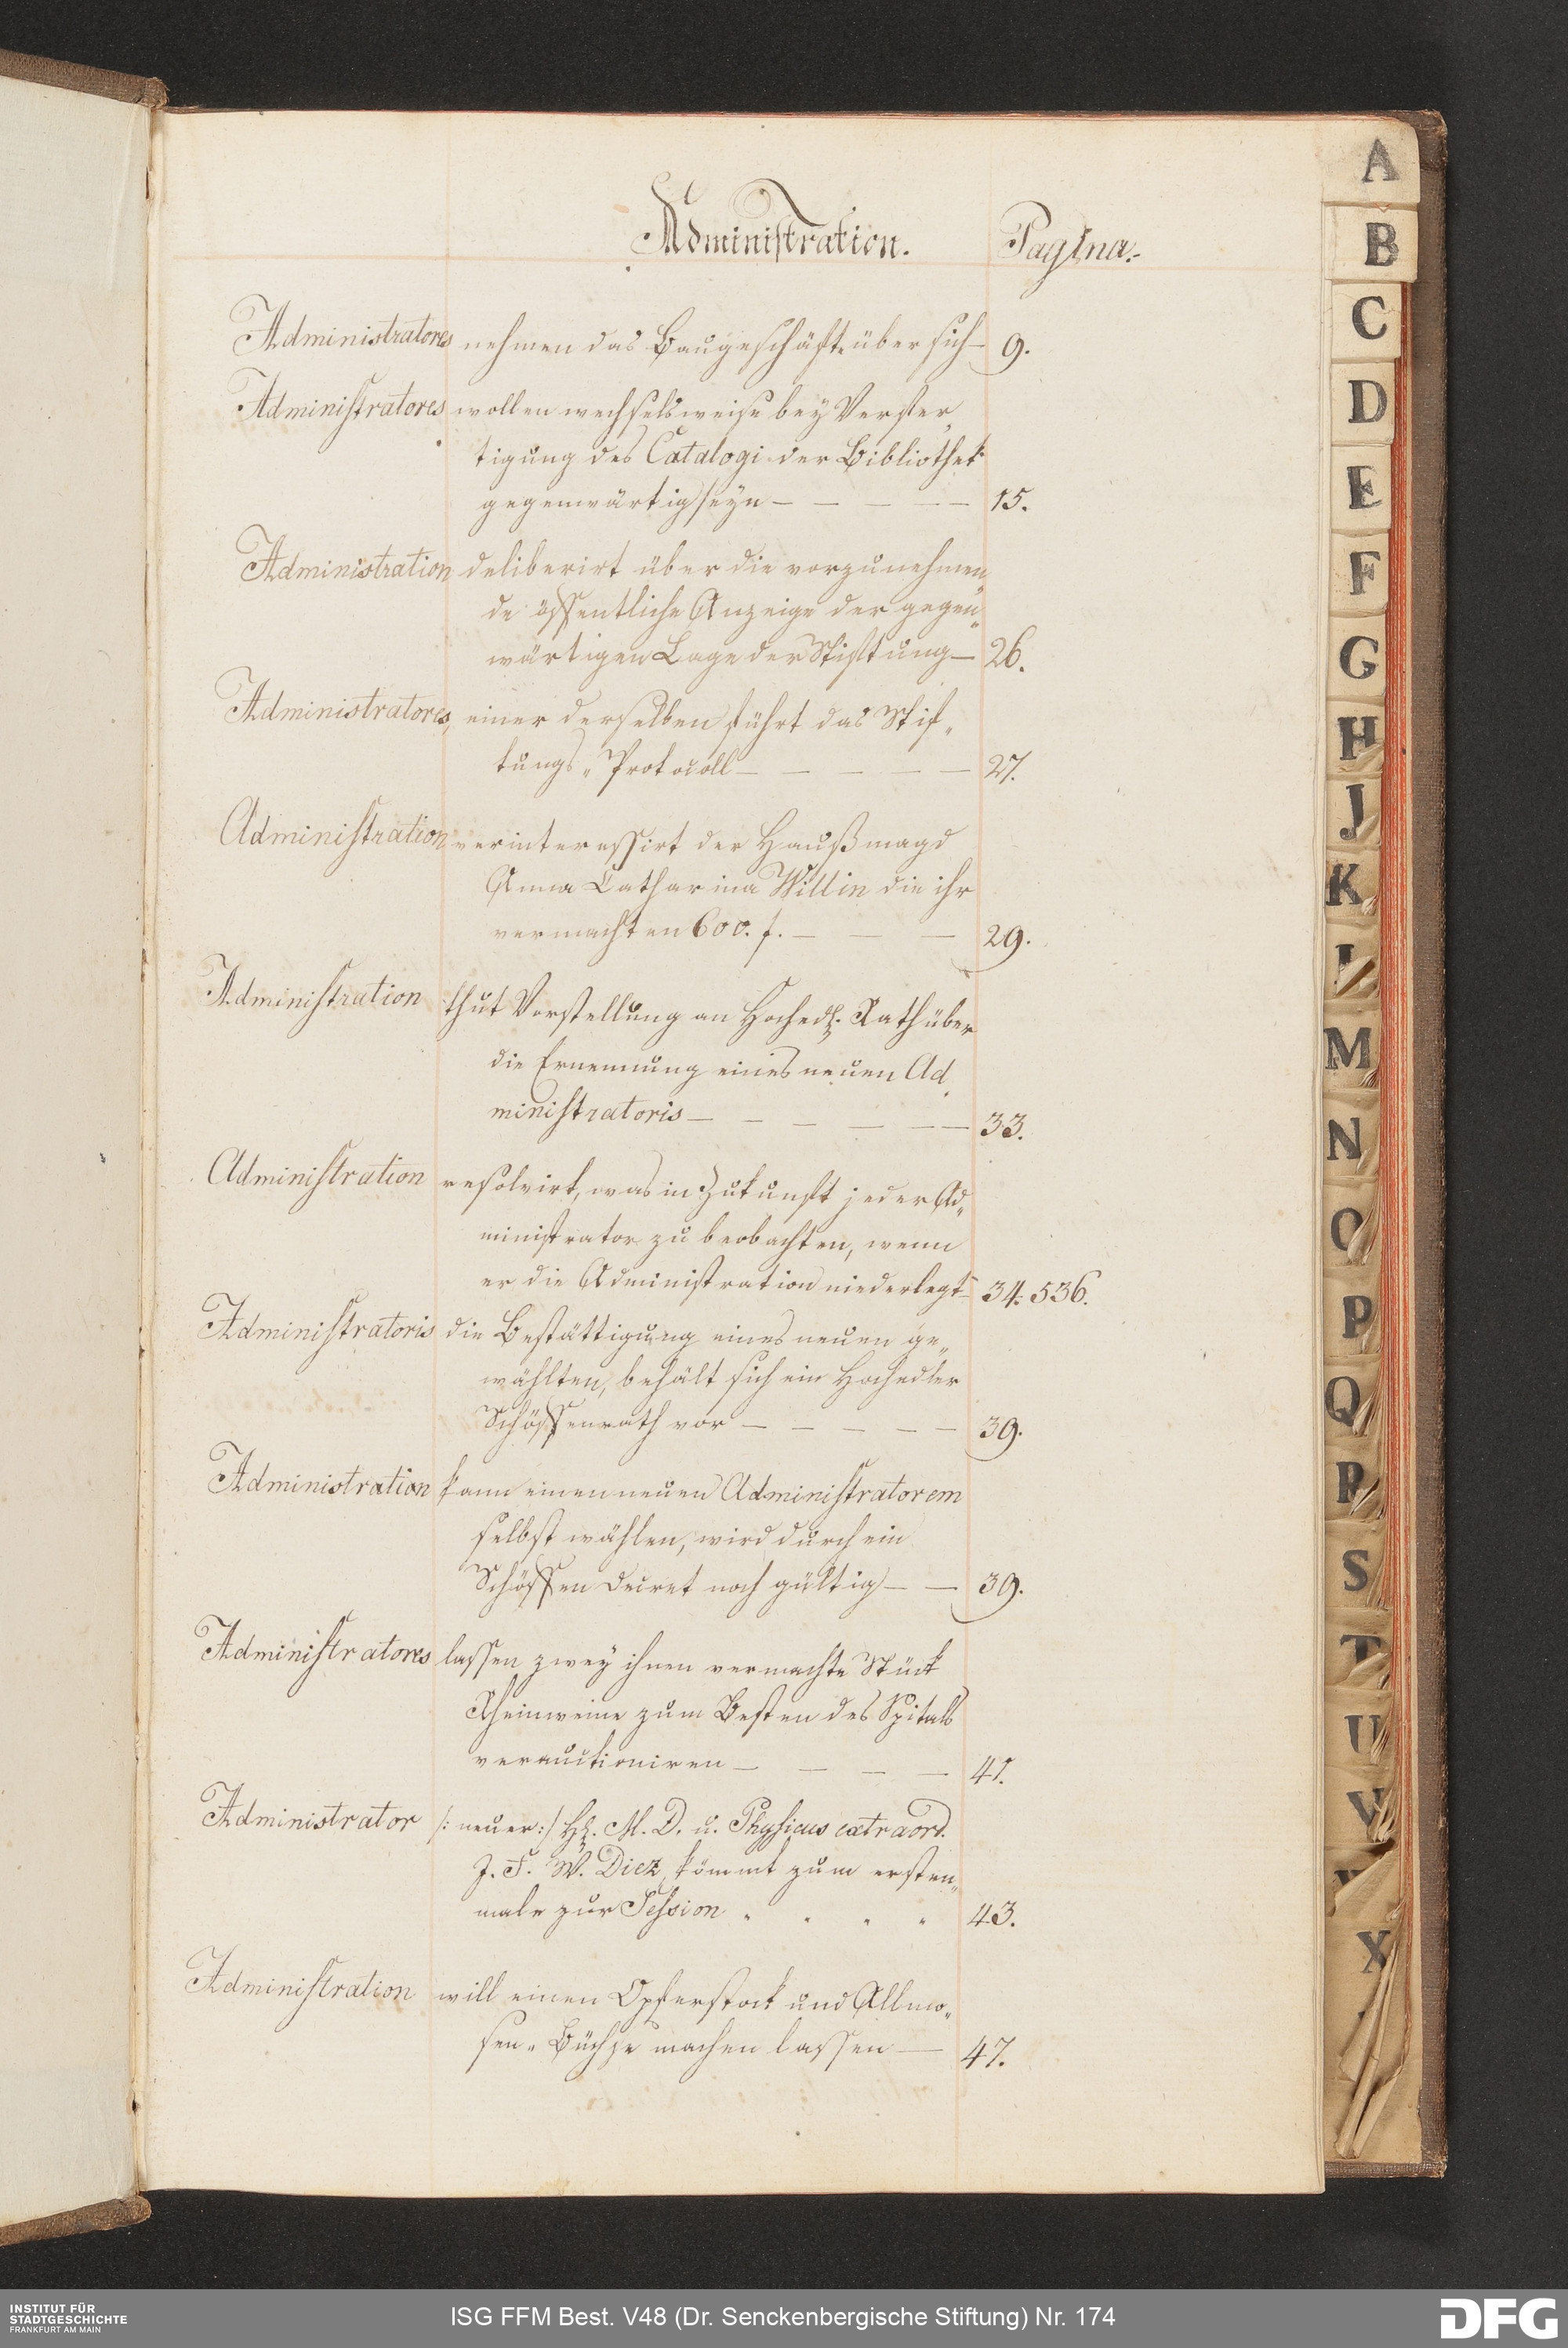 Administration.
Pagina.
Administratores nehmen das Baugeschäfte über sich — 9.
Administratores wollen wechselsweise bey Verfer„
tigung des Catalogi der Bibliothek
gegenwärtig seyn — — — — — 15.
Administration deliberirt über die vorzunehmen„
de öffentliche Anzeige der gegen„
wärtigen Lage der Stiftung — 26.
Administratores, einer derselben führt das Stif„
tungs„Protocoll — — — — — 27.
Administration verinteressirt der Haußmagd
Anna Catharina Willin die ihr
vermachten 600. f. — — — 29.
Administration thut Vorstellung an Hochedl. Rath über
die Ernennung eines neuen Ad„
ministratoris — — — — — — 33.
Administration resolvirt, was in Zukunft jeder Ad„
ministrator zu beobachten, wenn
er die Administration niederlegt — 34. 536.
Administratoris die Bestättigung eines neuen ge„
wählten, behält sich ein Hochedler
Schöffenrath vor — — — — — 39.
Administration kann einen neuen Administratorem
selbst wählen, wird durch ein
Schöffen Decret noch gültig — — 39.
Administratores lassen zwey ihnen vermachte Stück
Rheinweine zum Besten des Spitals
verauctioniren — — — — 41.
Administrator /: neuer :/ H. M. D. u. Physicus extraord.
J. F. W. Diez, kömmt zum ersten„
male zur Session „ „ „ „ 43.
Administration will einen Opferstock und Allmo„
sen„Büchse machen lassen — 47.
A
B
C
D
E
F
G
H
J
K
L
M
N
O
P
Q
R
S
T
U
V
X
INSTITUT FÜR
STADTGESCHICHTE
FRANKFURT AM MAIN
ISG FFM Best. V48 (Dr. Senckenbergische Stiftung) Nr. 174
DFG